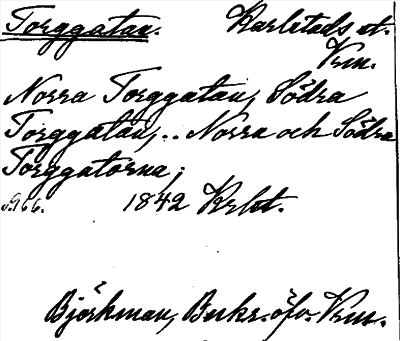 Torggatan. Karlstads st.
Vrm.
Norra Torggatan, Södra
Torggatan, .. Norra och Södra
Torggatorna;
s. 966. 1842 Krlst.
Björkman, Beskr. öfv. Vrm.